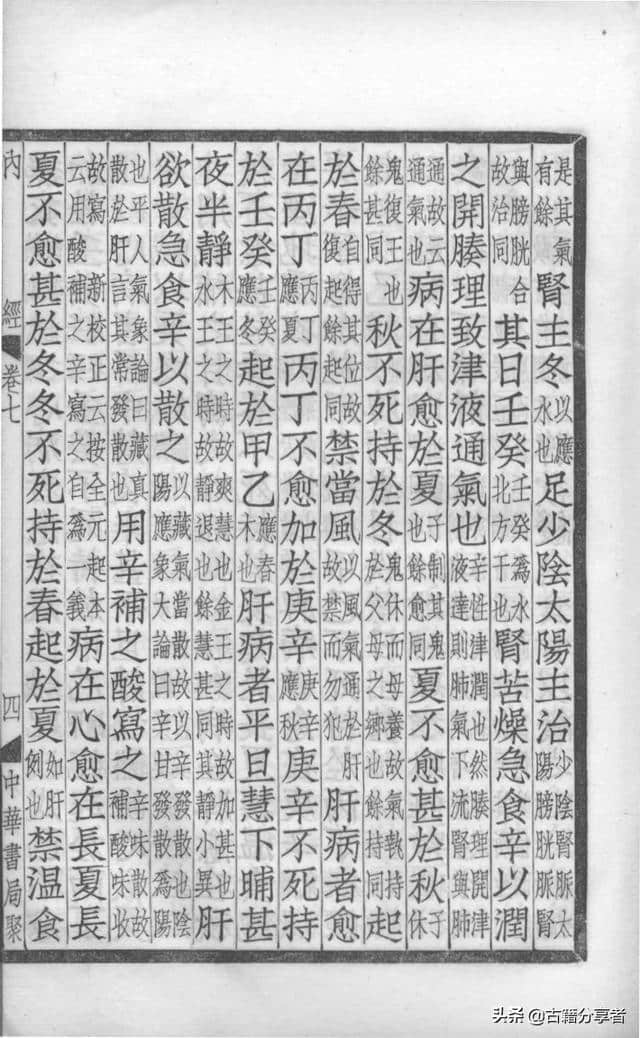 是其氣有餘腎主冬以應水也足少陰太陽主治少陰腎脈太陽膀胱脈腎
與膀胱合故治同其日壬癸壬癸爲水北方干也腎苦燥急食辛以潤
之開腠理致津液通氣也辛性津潤也然腠理開津液達則肺氣下流腎與肺
通故云通氣也病在肝愈於夏子制其鬼也餘愈同夏不愈甚於秋子休
鬼復王也餘甚同秋不死持於冬鬼休而母養故氣執持於父母之鄉也餘持同起
於春自得其位故復起餘起同禁當風以風氣通於肝故禁而勿犯肝病者愈
在丙丁丙丁應夏丙丁不愈加於庚辛庚辛應秋庚辛不死持
於壬癸壬癸應冬起於甲乙應春木也肝病者平旦慧下晡甚
夜半靜木王之時故爽慧也金王之時故加甚也水王之時故靜退也餘慧甚同其靜小異肝
欲散急食辛以散之以藏氣當散故以辛發散也陰陽應象大論曰辛甘發散爲陽
也平人氣象論曰藏真散於肝言其常發散也用辛補之酸寫之辛味散故補酸味收
故寫新校正云按全元起本云用酸補之辛寫之自爲一義病在心愈在長夏長
夏不愈甚於冬冬不死持於春起於夏如肝例也禁溫食
內經 卷七 四 中華書局聚
头条 @古籍分享者